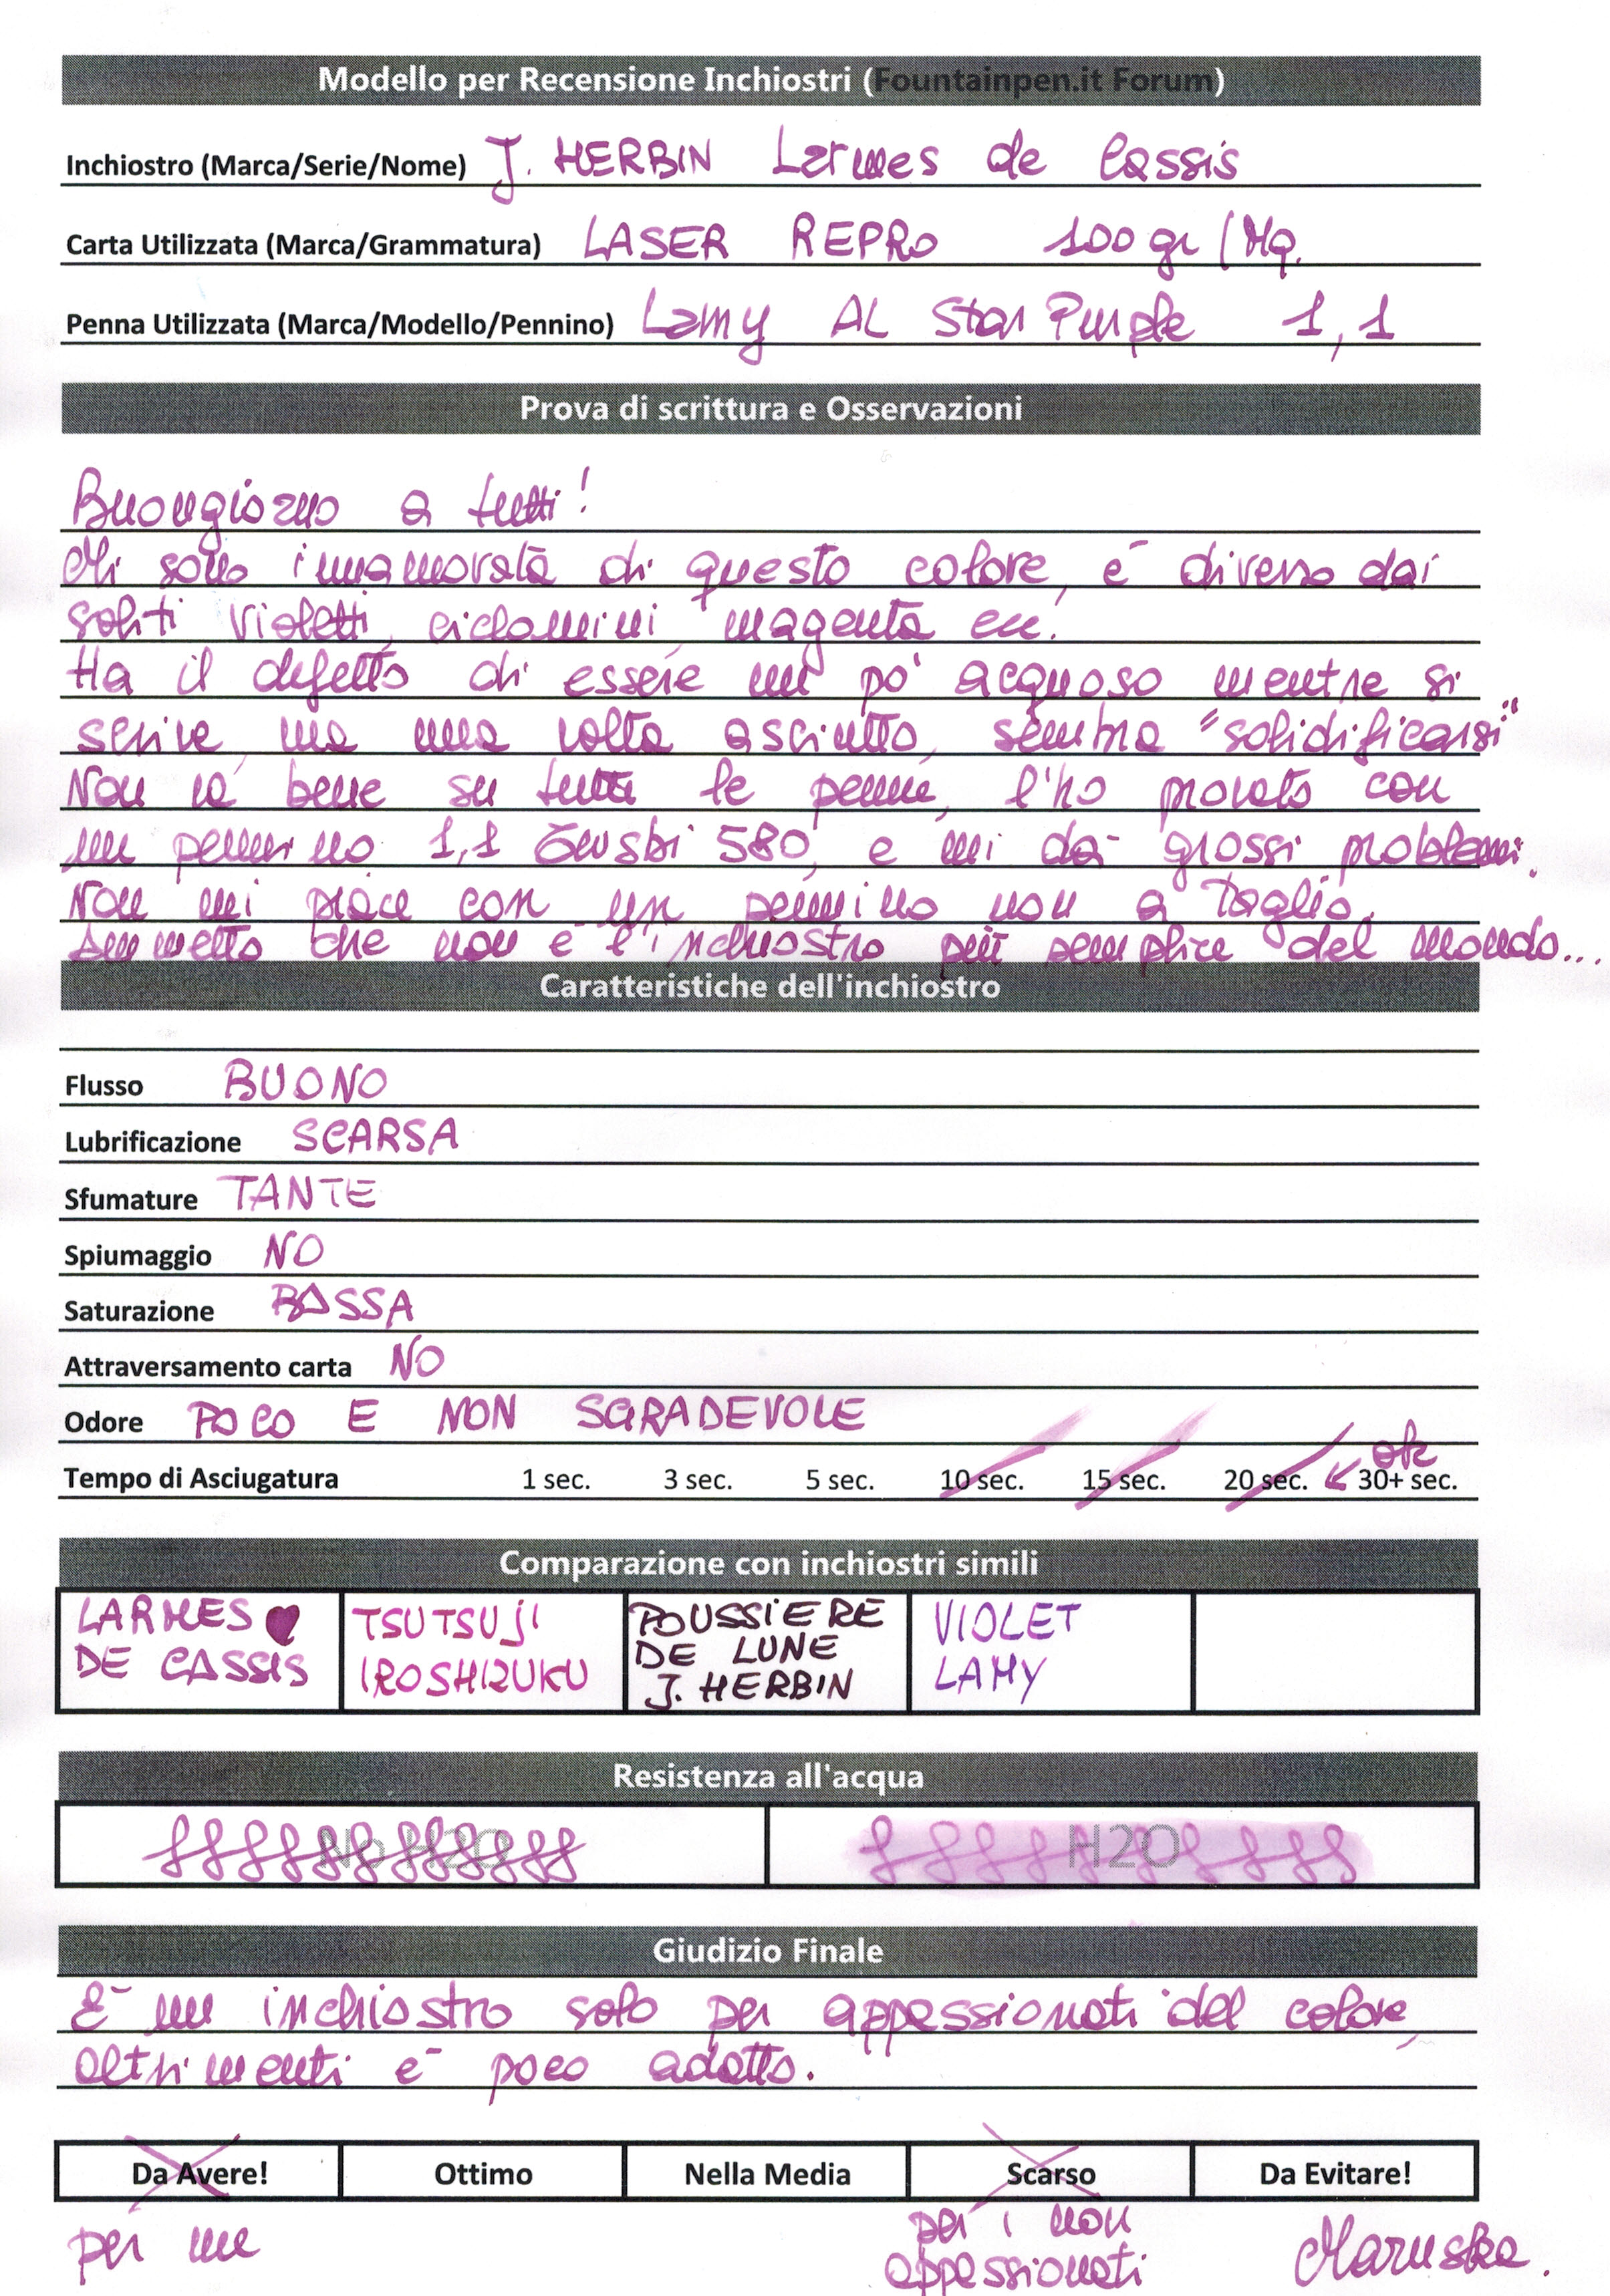 Modello per Recensione Inchiostri (Fountainpen.it Forum)
Inchiostro (Marca/Serie/Nome) J. HERBIN Larmes de Cassis
Carta Utilizzata (Marca/Grammatura) LASER REPRO 100 gr/Mq.
Penna Utilizzata (Marca/Modello/Pennino) Lamy AL Star Purple 1,1
Prova di scrittura e Osservazioni
Buongiorno a tutti!
Mi sono innamorata di questo colore, è diverso dai
soliti violetti, ciclamini magenta ecc.
Ha il defetto di essere un po' acquoso mentre si
scrive, ma una volta asciutto, sembra "solidificarsi"
Non và bene su tutte le penne, l'ho provato con
un pennino 1,1 Twsbi 580, e mi dà grossi problemi.
Non mi piace con un pennino non a taglio.
Ammetto che non è l'inchiostro più semplice del mondo...
Caratteristiche dell'inchiostro
Flusso BUONO
Lubrificazione SCARSA
Sfumature TANTE
Spiumaggio NO
Saturazione BASSA
Attraversamento carta NO
Odore POCO E NON SGRADEVOLE
ok
Tempo di Asciugatura 1 sec. 3 sec. 5 sec. 10 sec. 15 sec. 20 sec. 30+ sec.
Comparazione con inchiostri simili
LARMES DE CASSIS
TSUTSUJI IROSHIZUKU
POUSSIERE DE LUNE J. HERBIN
VIOLET LAMY
Resistenza all'acqua
No H2O H2O
Giudizio Finale
È un inchiostro solo per appassionati del colore,
altrimenti è poco adatto.
Da Avere! Ottimo Nella Media Scarso Da Evitare!
per me
per i non
appassionati
Maruska.